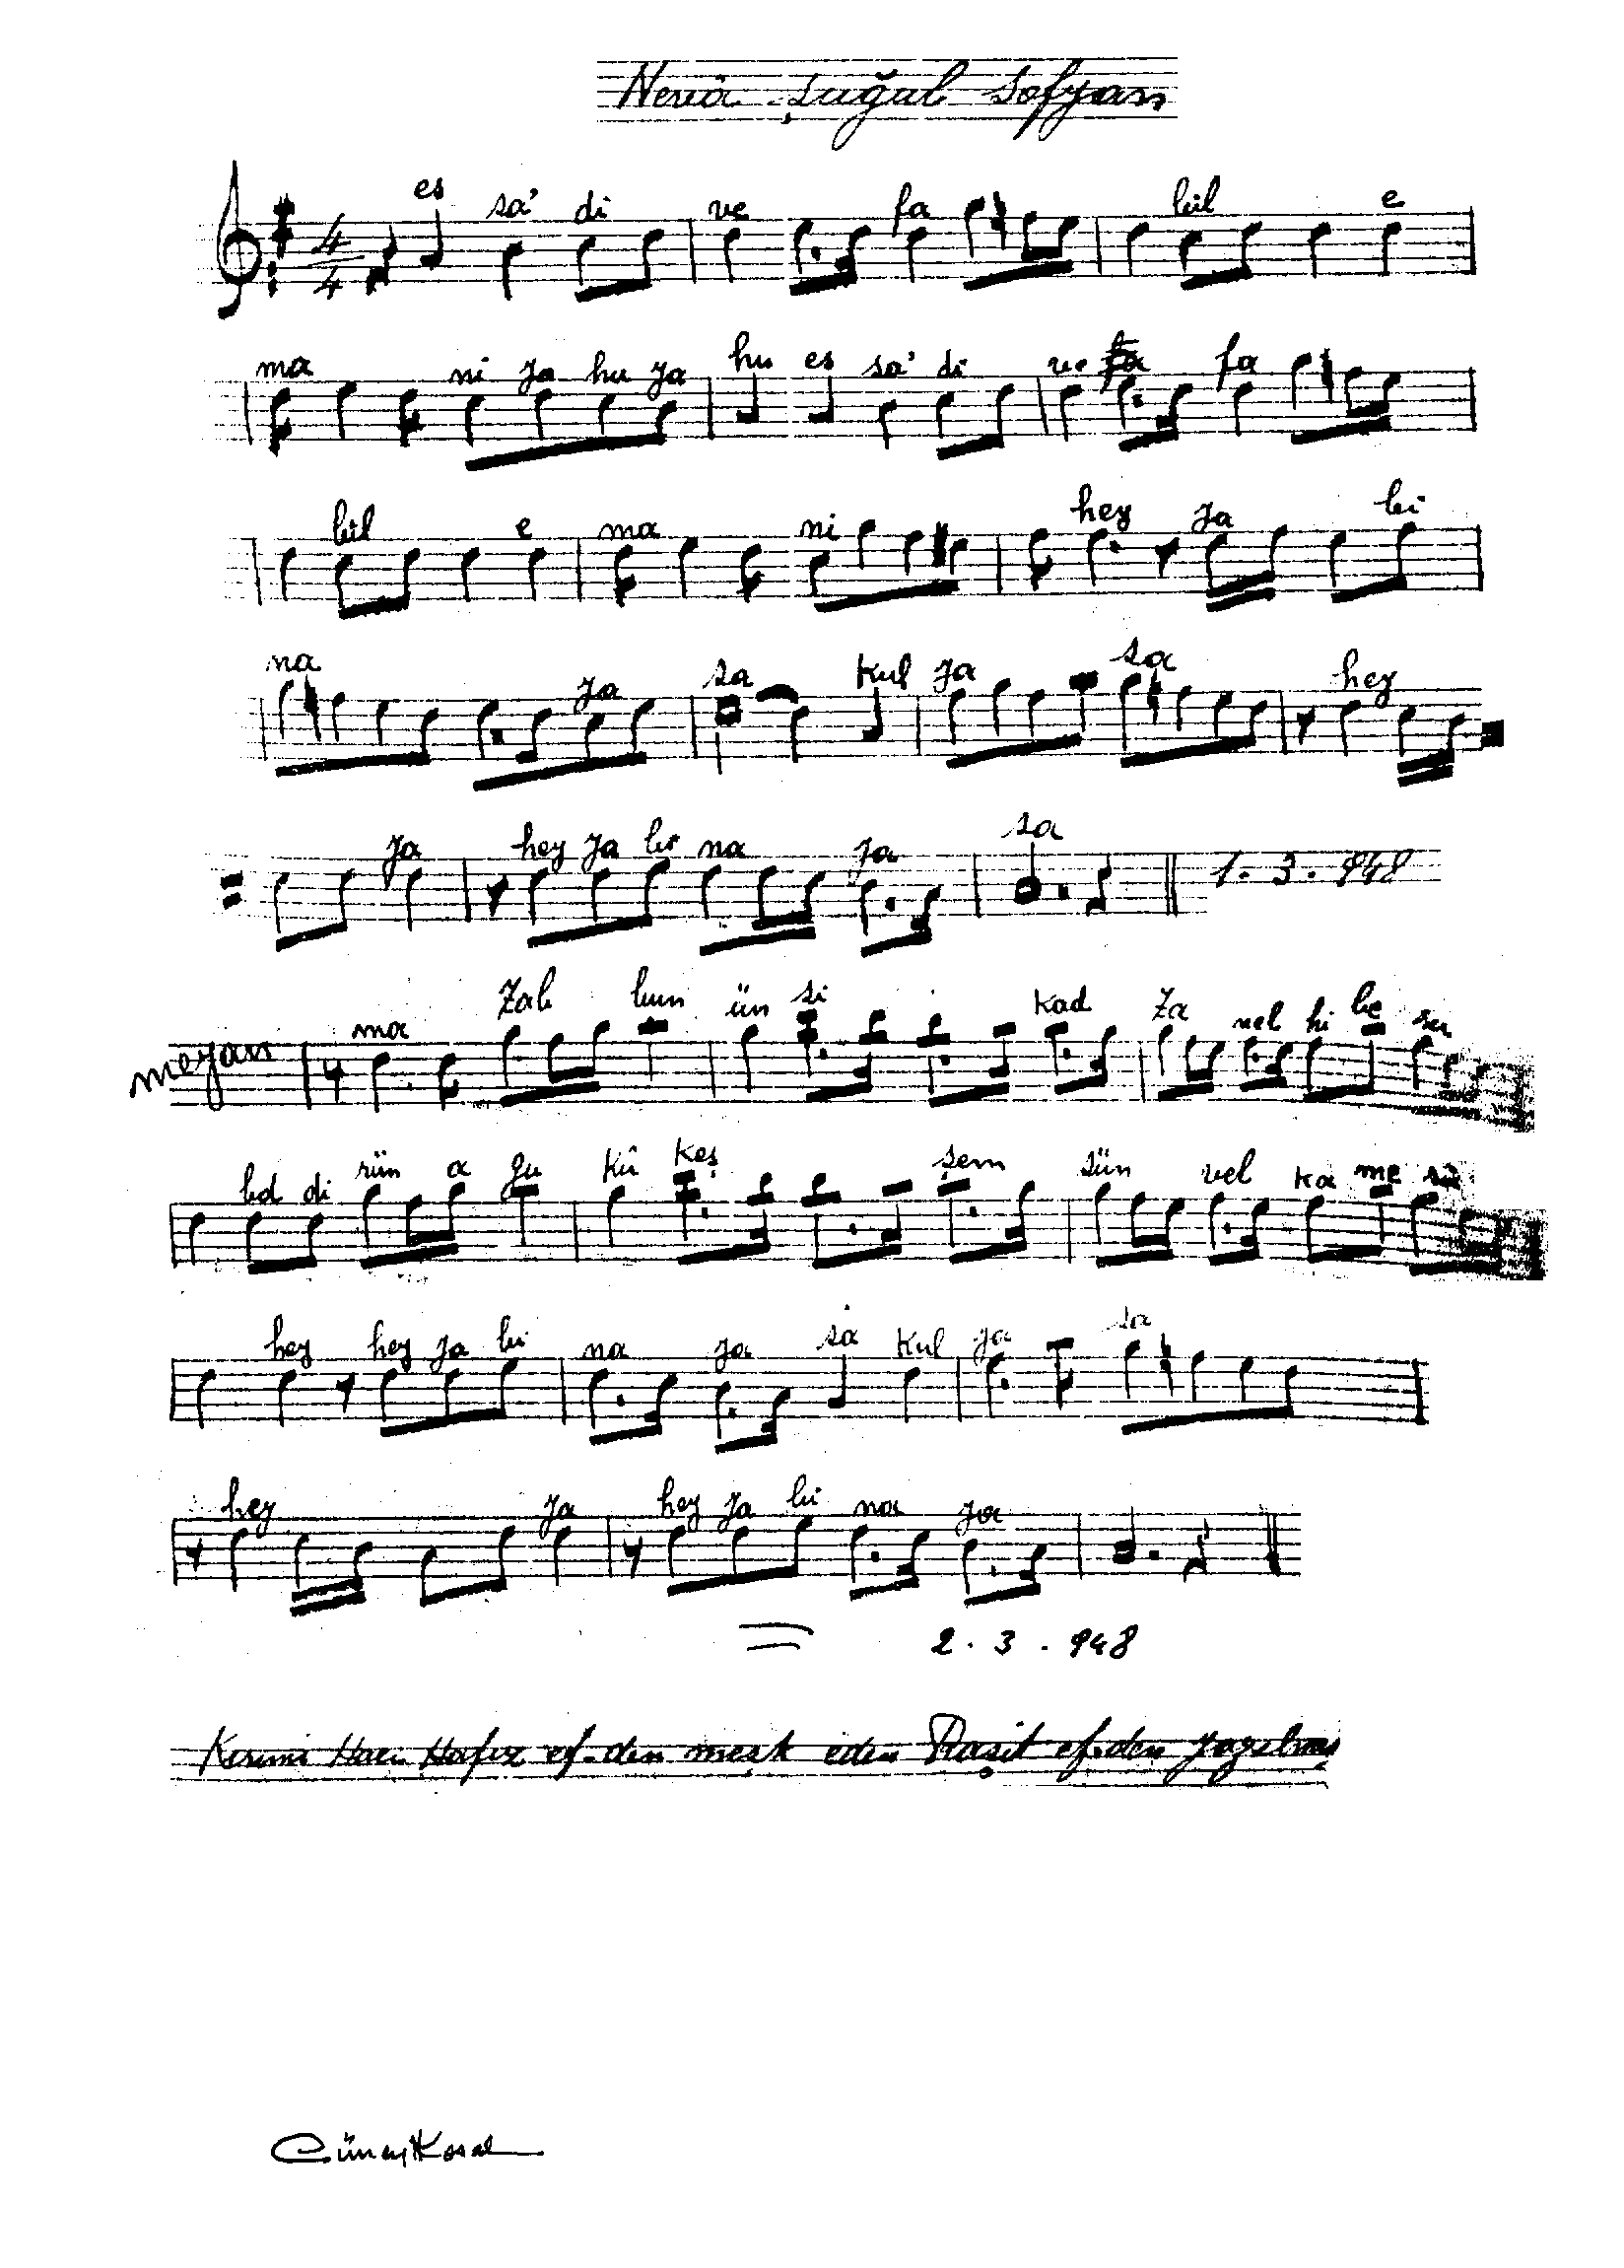 Nevâ şuğul sofyan
4/4
es sa' di ve fa bil e
ma ni ya hu ya hu es sa' di ve fa
bil e ma ni hey ya bi
na ya sa kul ya sa hey
ya hey ya bi na ya sa 1.3.948
meyan ma zab bun ün si kad za vel hi be
bd di rün a gu kû keş şem sün vel ka me
hey hey ya bi na ya sa kul ya sa
hey ya hey ya bi na ya
2.3.948
Hafız ef.den meşk eden Raşit ef.den yazılmış
Cüneyt Kosal